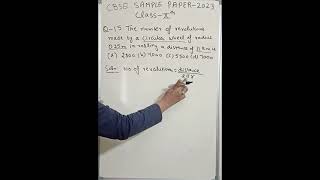 CBSE SAMPLE PAPER-2023
Class-Xth
Q-15 The number of revolutions
made by a Circular wheel of radius
0.25m in rolling a distance of 11km is
(A) 2800 (b) 4000 (c) 5500 (d) 7000
Soln: no of revolutions = distance
2πr